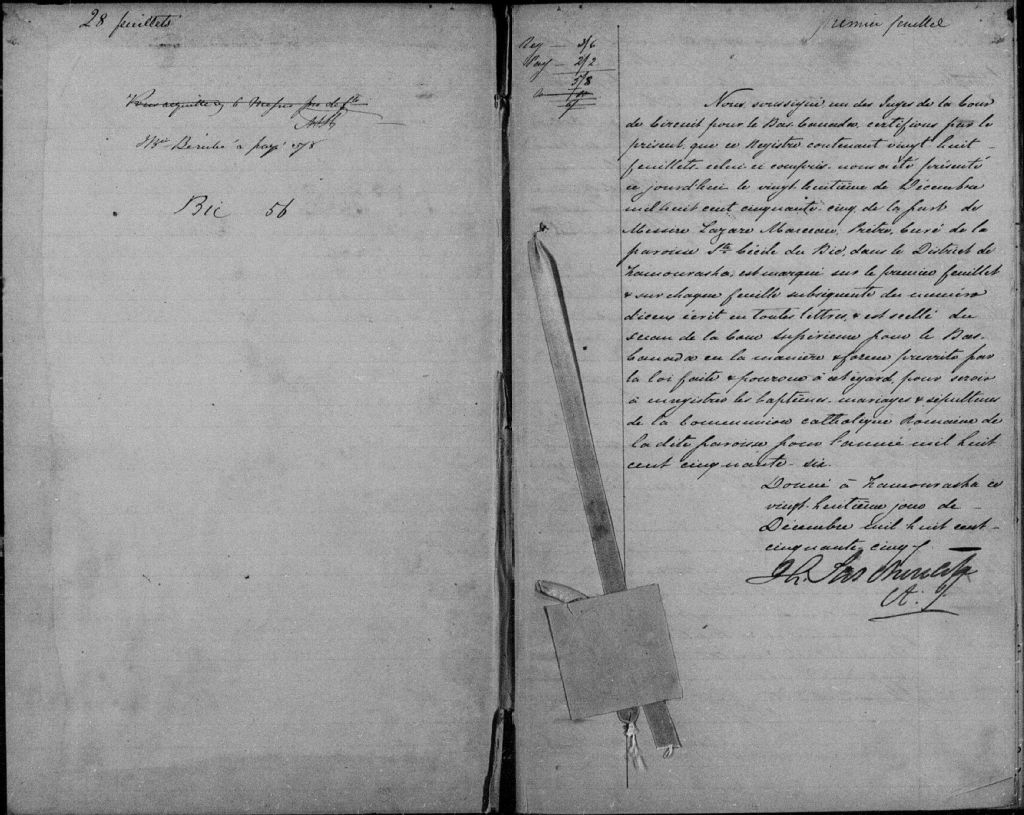 28 feuillets
Mr Bérubé a payé 5/8
Bic 56
premier feuillet
Reg — 3/6
2/2
5/8
Nous, soussigné un des Juges de la Cour
de Circuit pour le Bas-Canada, certifions par le
présent, que ce Registre contenant vingt huit
feuillets celui-ci compris nous a été présenté
ce jourd'hui le vingt huitième de Décembre
mil huit cent cinquante-cinq de la part de
Messire Lazare Marceau, Prêtre, Curé de la
paroisse Ste Cécile du Bic, dans le District de
Kamouraska, est marqué sur le premier feuillet
& sur chaque feuille subséquente du numéro
d'iceux écrit en toutes lettres, & est scellé du
sceau de la Cour Supérieure pour le Bas-
Canada en la manière & forme prescrite par
la loi faite & pourvue à cet égard, pour servir
à enregistrer les baptêmes, mariages & sépultures
de la Communion catholique Romaine de
la dite paroisse pour l'année mil huit
cent cinquante-six.
Donné à Kamouraska ce
vingt-huitième jour de
Décembre mil huit cent
cinquante-cinq